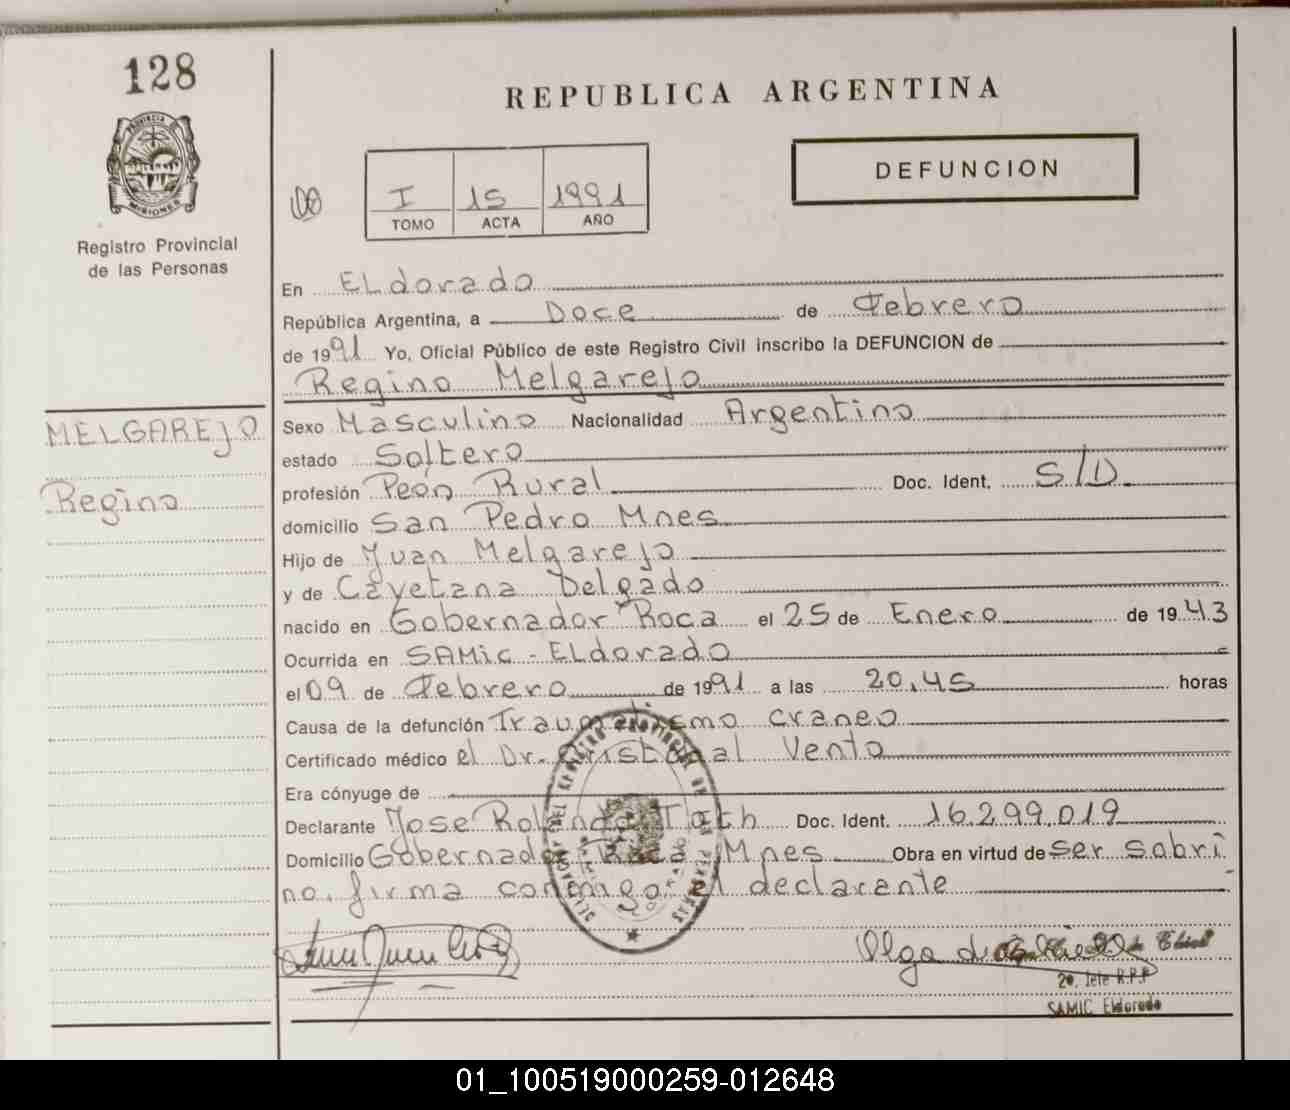 128
REPUBLICA ARGENTINA
PROVINCIA
MISIONES
Registro Provincial
de las Personas
I 15 1991
TOMO ACTA AÑO
DEFUNCION
En Eldorado
República Argentina, a Doce de Febrero
de 1991 Yo, Oficial Público de este Registro Civil inscribo la DEFUNCION de
Regino Melgarejo
MELGAREJO
Regino
Sexo Masculino Nacionalidad Argentino
estado Soltero
profesión Peón Rural Doc. Ident. S/D
domicilio San Pedro Mnes
Hijo de Juan Melgarejo
y de Cayetana Delgado
nacido en Gobernador Roca el 25 de Enero de 1943
Ocurrida en SAMic - ELdorado
el 09 de Febrero de 1991 a las 20,45 horas
Causa de la defunción Traumatismo craneo
Certificado médico el Dr. Cristobal Vento
Era cónyuge de
Declarante Jose Rolando Toth Doc. Ident. 16.299.019
Domicilio Gobernador Roca Mnes Obra en virtud de ser sobri
no. firma conmigo el declarante
Olga
2º. Jefe R.P.P
SAMIC Eldorado
01_100519000259-012648